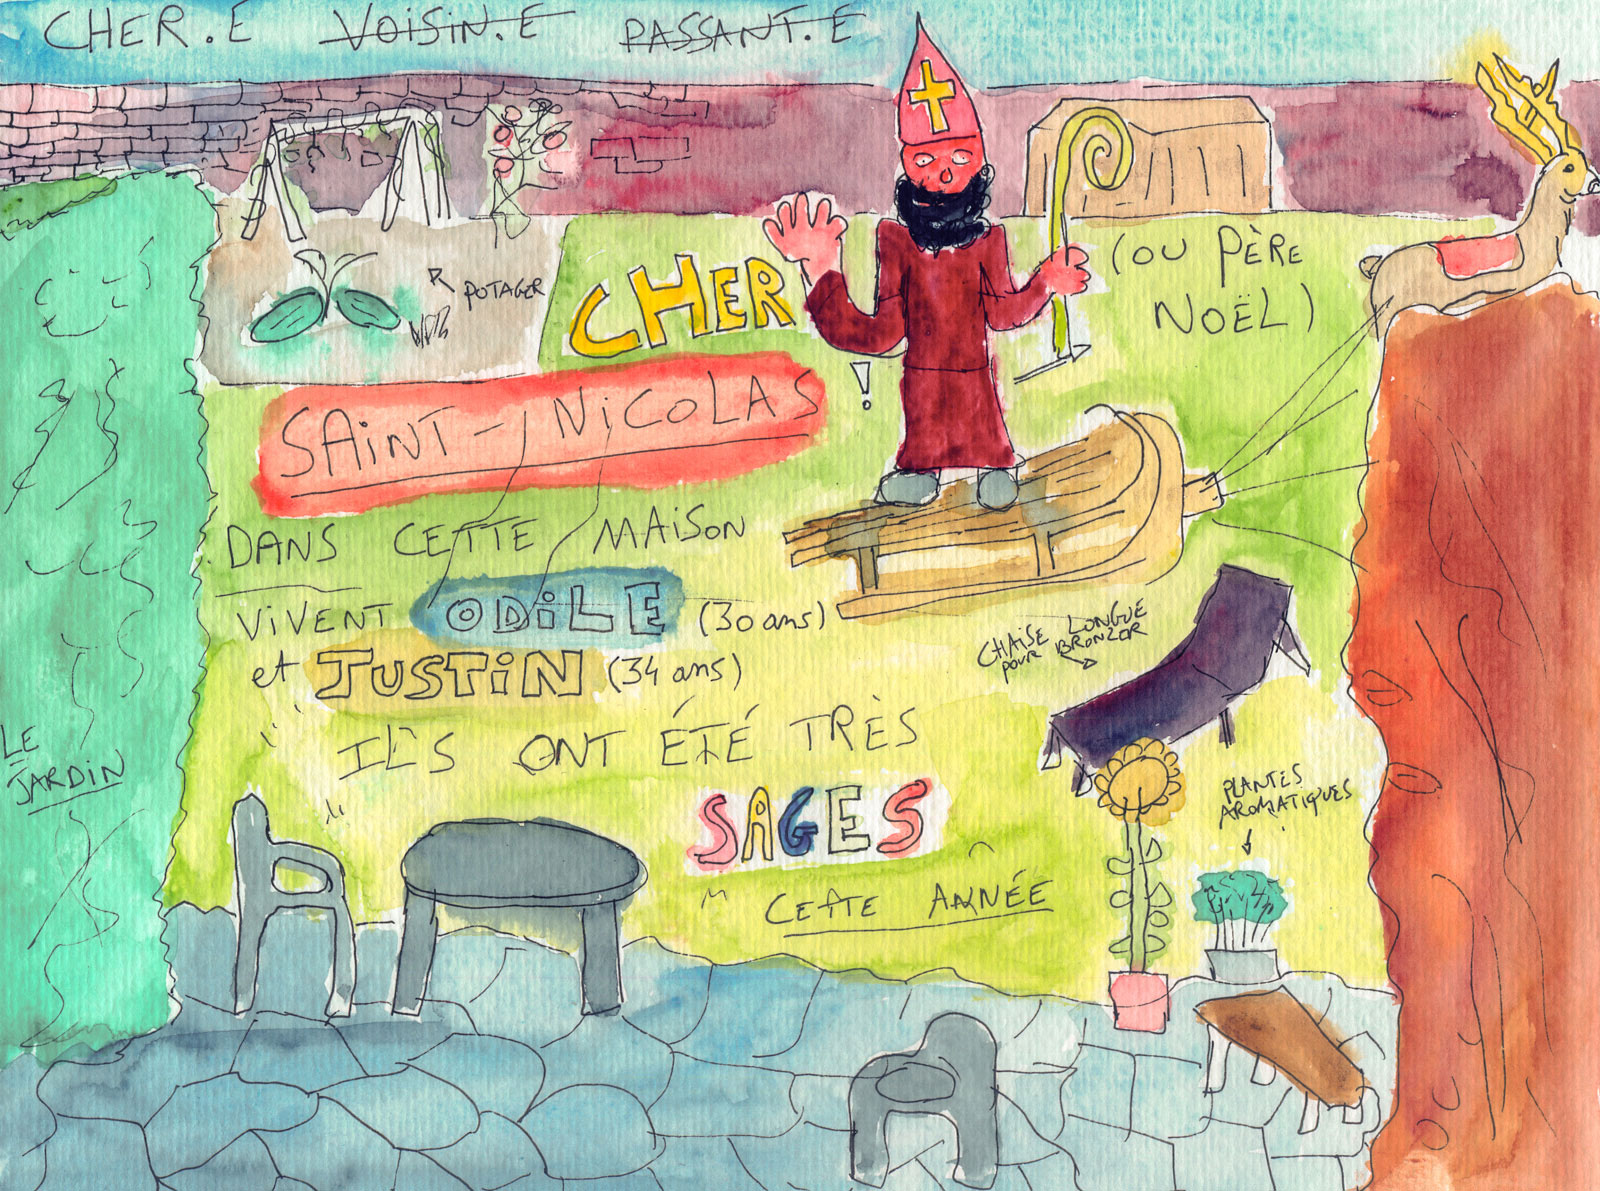 CHER.E VOISIN.E PASSANT.E
POTAGER
CHER
(OU PÈRE
NOËL)
SAINT-NICOLAS !
DANS CETTE MAISON
VIVENT ODILE (30 ans)
et JUSTIN (34 ans)
ILS ONT ÉTÉ TRÈS
SAGES
CETTE ANNÉE
CHAISE LONGUE
POUR BRONZER
PLANTES
AROMATIQUES
LE
JARDIN